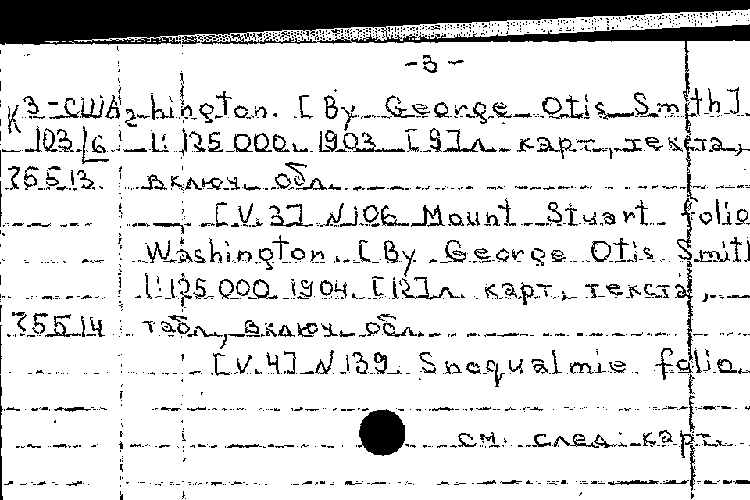 -3-
К 3-США 2 hington. [By George Otis Smith]
103/6 1:125 000. 1903. [9] л. карт, текста,
25513 включ. обл.
[V.3] N 106 Mount Stuart folio
Washington. [By George Otis Smith
1:125 000. 1904. [12] л. карт, текста,
25514 табл., включ. обл.
[V.4] N 139. Snoqualmie folio,
см. след. карт.